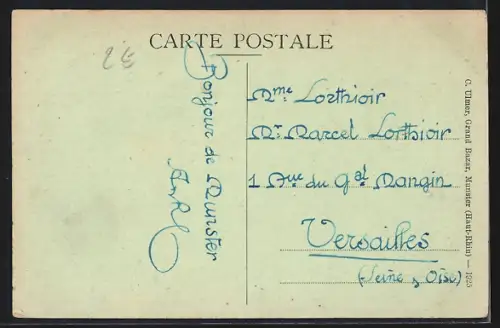 CARTE POSTALE
2€
Bonjour de Munster
Mme Lorthioir
Mr Marcel Lorthioir
1 Aue du Gal Mangin
Versailles
(Seine & Oise)
C. Ulmer, Grand Bazar, Munster (Haut-Rhin) — 1925